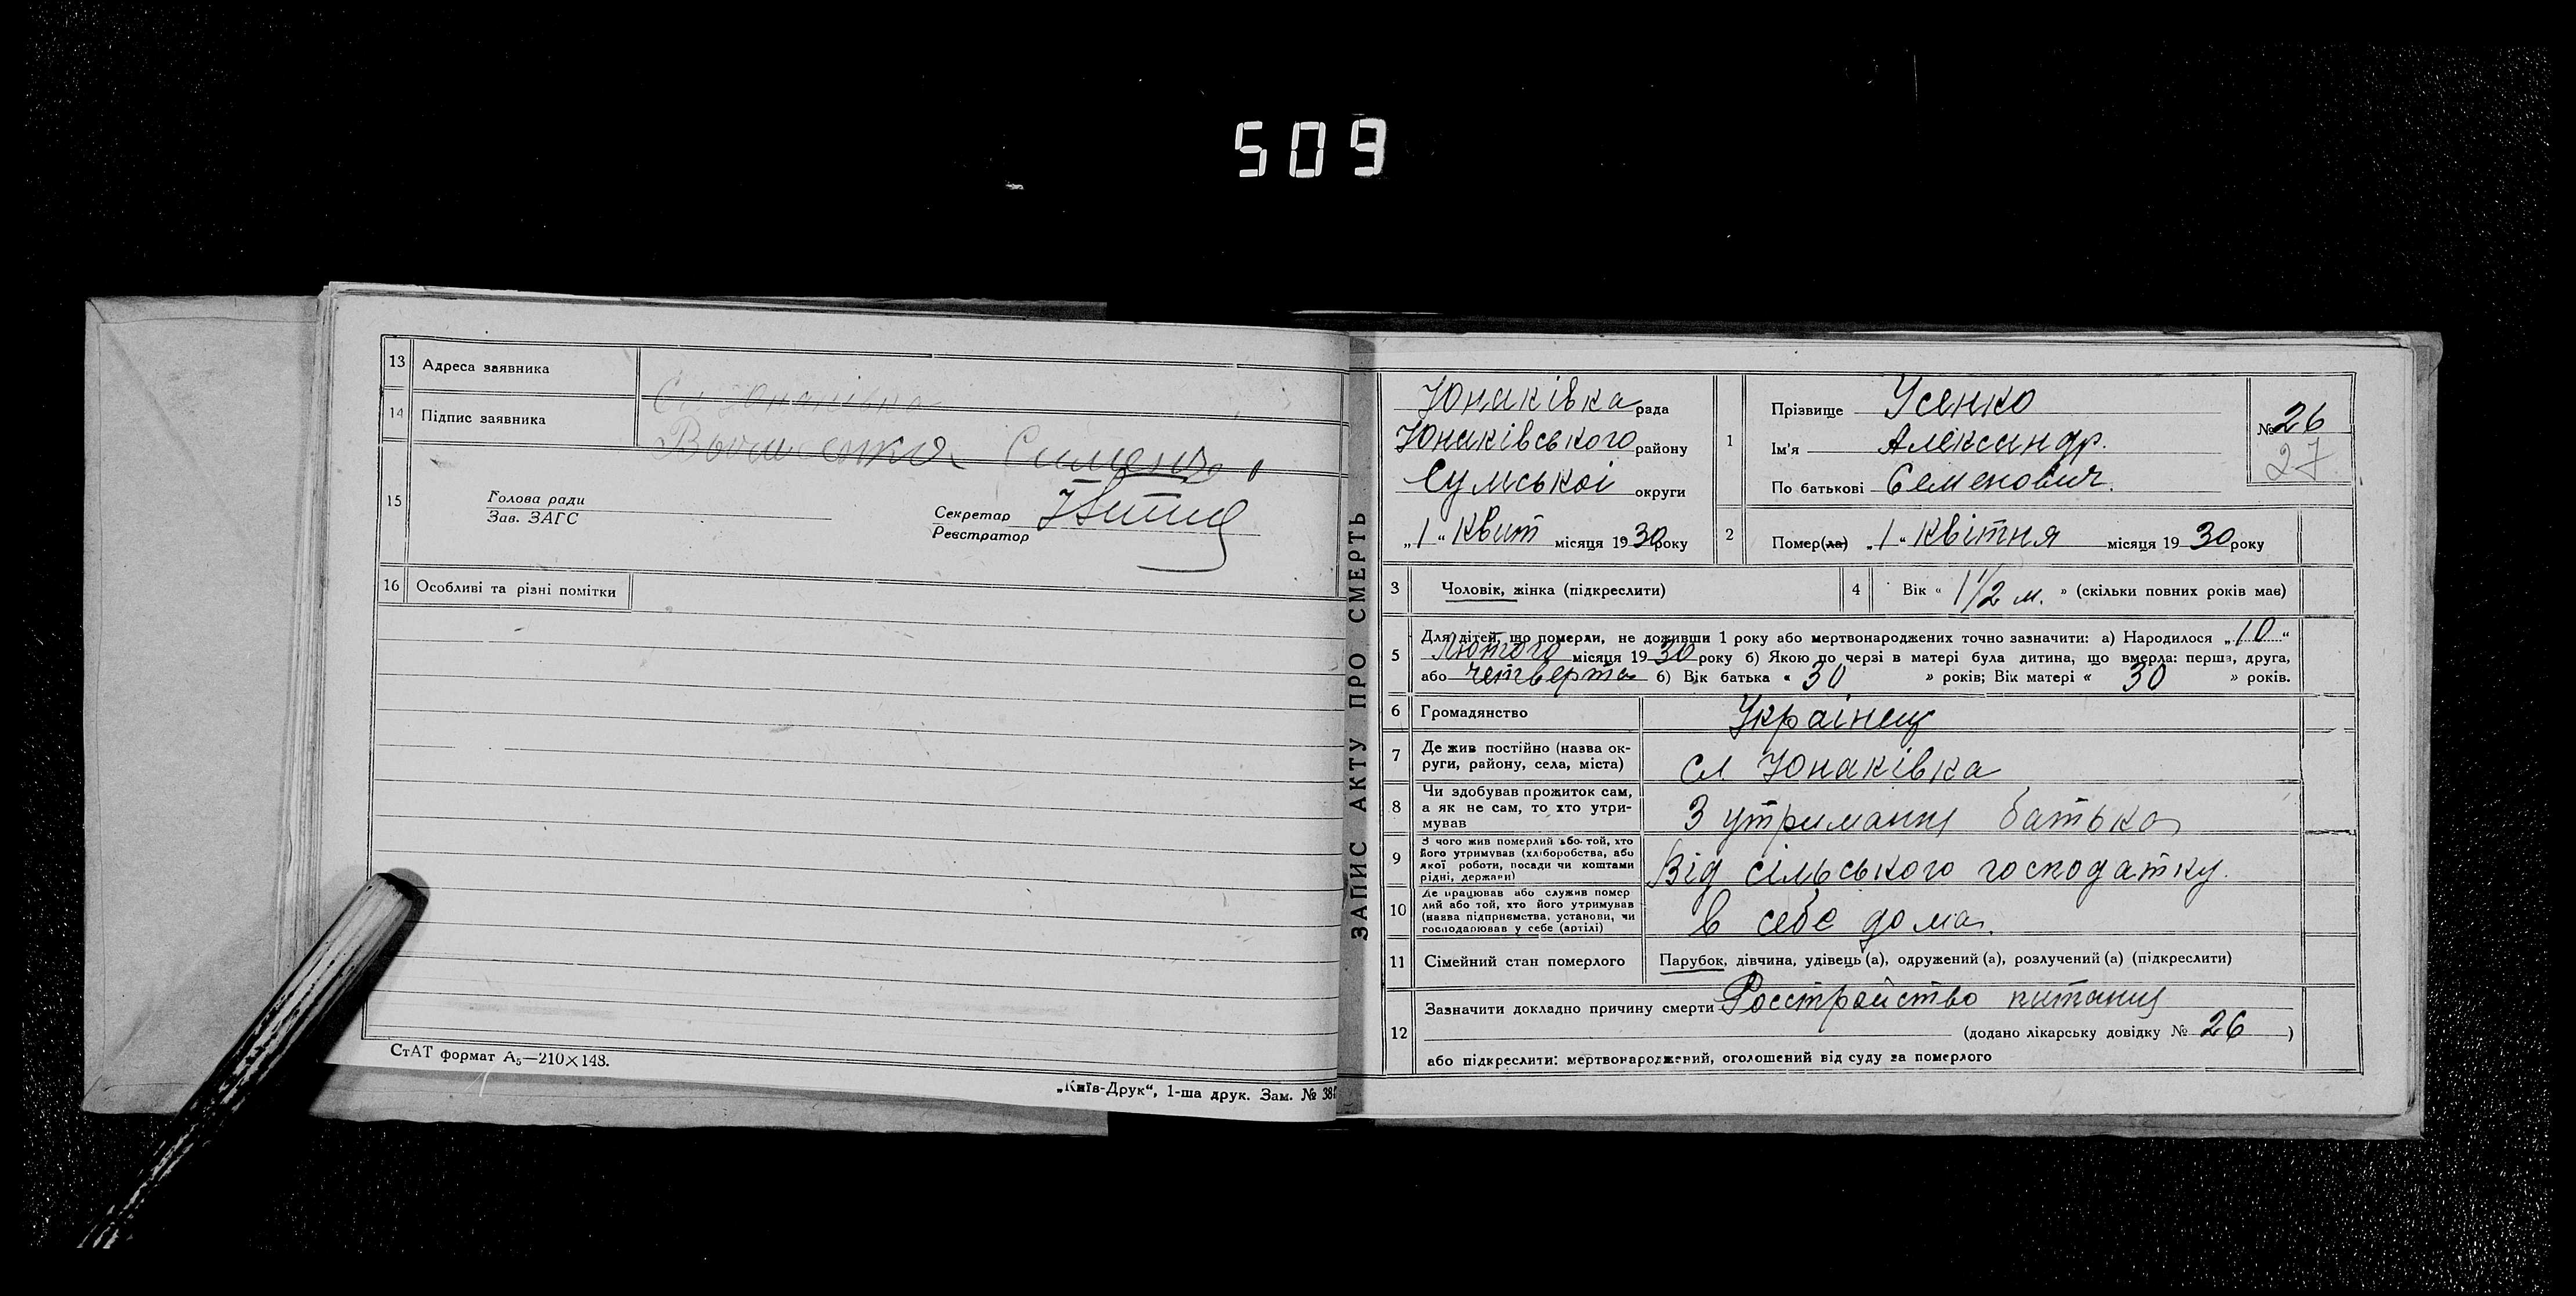 509
13 Адреса заявника
14 Підпис заявника
15 Голова ради
Зав. ЗАГС
Секретар
Реєстратор
16 Особливі та різні помітки
СтАТ формат А₅—210×148.
„Київ-Друк“, 1-ша друк. Зам. № 38
ЗАПИС АКТУ ПРО СМЕРТЬ
Юнаківка рада
Юнаківського району
Сумської округи
„1“ Квит місяця 1930 року
1 Прізвище Усенко
Ім'я Александр.
По батькові Семенович.
№ 26
27
2 Помер(ла) „1“ Квітня місяця 1930 року
3 Чоловік, жінка (підкреслити)
4 Вік « 1 1/2 м. » (скільки повних років має)
5 Для дітей, що померли, не доживши 1 року або мертвонароджених точно зазначити: а) Народилося „10“
Лютого місяця 1930 року б) Якою по черзі в матері була дитина, що вмерла: перша, друга,
або четверта б) Вік батька « 30 » років; Вік матері « 30 » років.
6 Громадянство Украінец
7 Де жив постійно (назва округи, району, села, міста) сл Юнаківка
8 Чи здобував прожиток сам,
а як не сам, то хто утримував
З утримання батька
9 З чого жив померлий або той, хто
його утримував (хліборобства, або
якої роботи, посади чи коштами
рідні, держави)
Від сільського господатку.
10 Де працював або служив померлий або той, хто його утримував
(назва підприємства, установи, чи
господарював у себе (артілі)
в себе дома.
11 Сімейний стан померлого Парубок, дівчина, удівець(а), одружений(а), розлучений(а) (підкреслити)
12 Зазначити докладно причину смерти Росстройство питания
(додано лікарську довідку № 26 )
або підкреслити: мертвонароджений, оголошений від суду за померлого